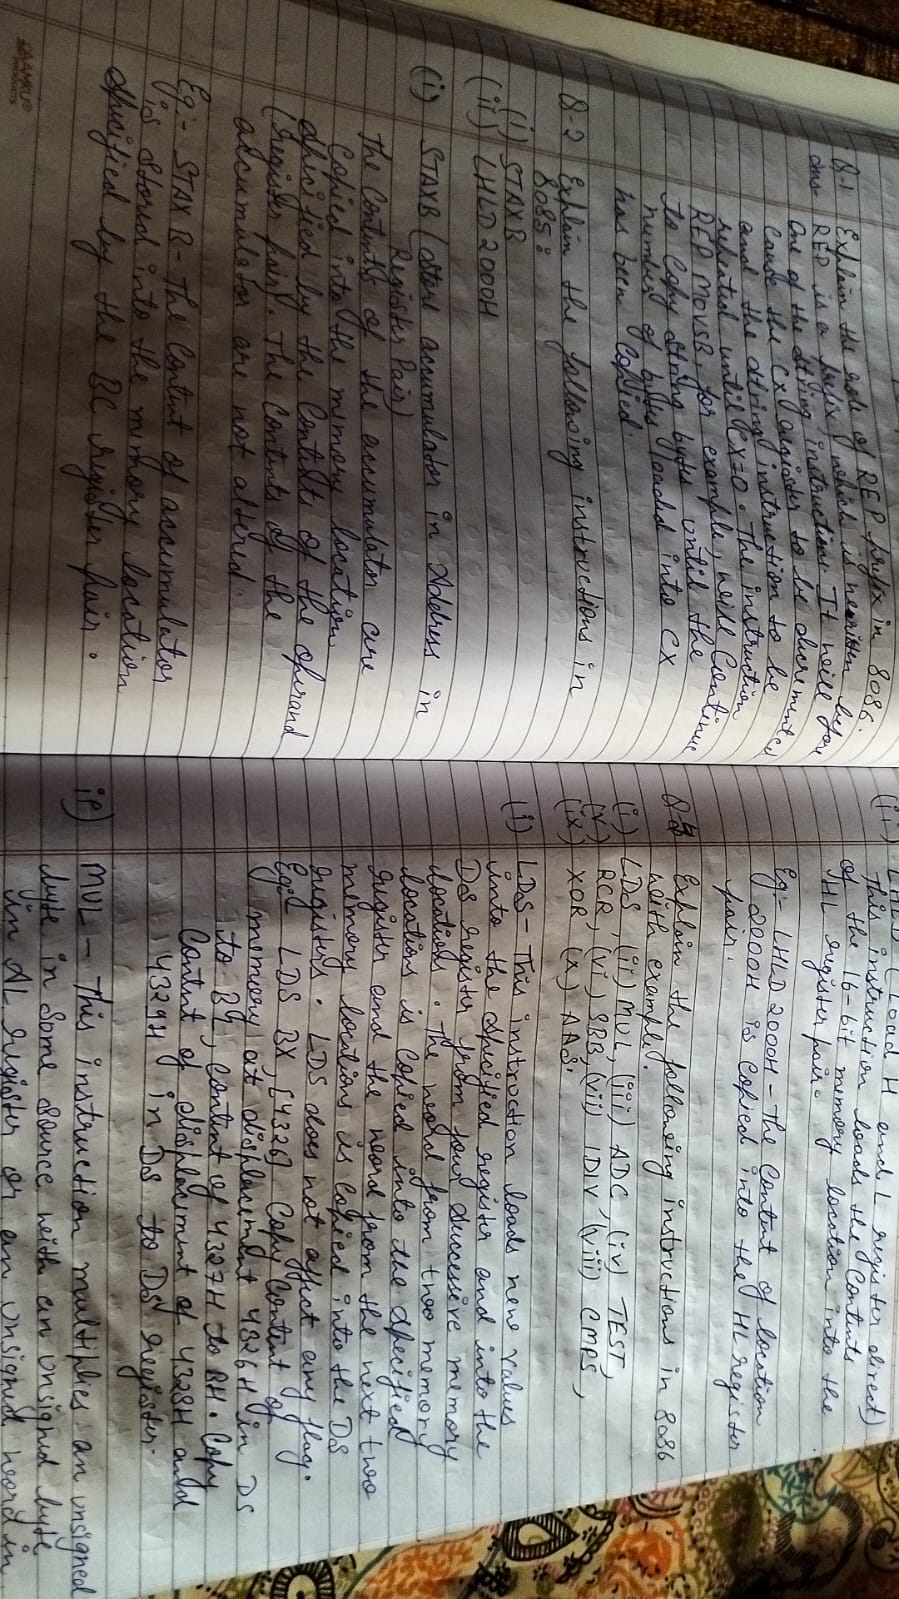 Q-1 Explain the role of REP prefix in 8086.
Ans- REP is a prefix which is written before
one of the string instructions. It will
cause the CX register to be decremented
and the string instruction to be
repeated until CX=0. The instruction
REP MOVSB, for example, will continue
to copy string bytes until the
number of bytes loaded into CX
has been copied.
Q-2 Explain the following instructions in
8085:
(i) STAX B
(ii) LHLD 2000H
(i) STAXB (Store accumulator in Address in
Register Pair)
The contents of the accumulator are
copied into the memory location
specified by the contents of the operand
(register pair). The contents of the
accumulator are not altered.
Eg:- STAX B - The content of accumulator
is stored into the memory location
specified by the BC register pair.
SAAMKU®
PRODUCTS
(ii) LHLD (Load H and L register direct)
This instruction loads the contents
of the 16-bit memory location into the
HL register pair.
Eg:- LHLD 2000H - The content of location
2000H is copied into the HL register
pair.
Q-3 Explain the following instructions in 8086
with example.
(i) LDS, (ii) MUL, (iii) ADC, (iv) TEST,
(v) RCR, (vi) SBB, (vii) IDIV (viii) CMPS,
(ix) XOR (x) AAS.
(i) LDS - This instruction loads new values
into the specified register and into the
DS register from four successive memory
locations. The word from two memory
locations is copied into the specified
register and the word from the next two
memory locations is copied into the DS
registers. LDS does not affect any flag.
Eg:- LDS BX, [4326] Copy content of
memory at displacement 4326H in DS
to BL, content of 4327H to BH. Copy
Contnt of displacement of 4328H and
4329H in DS to DS register.
ii) MUL - This instruction multiplies an unsigned
byte in some source with an unsigned byte
in AL register or an unsigned word in